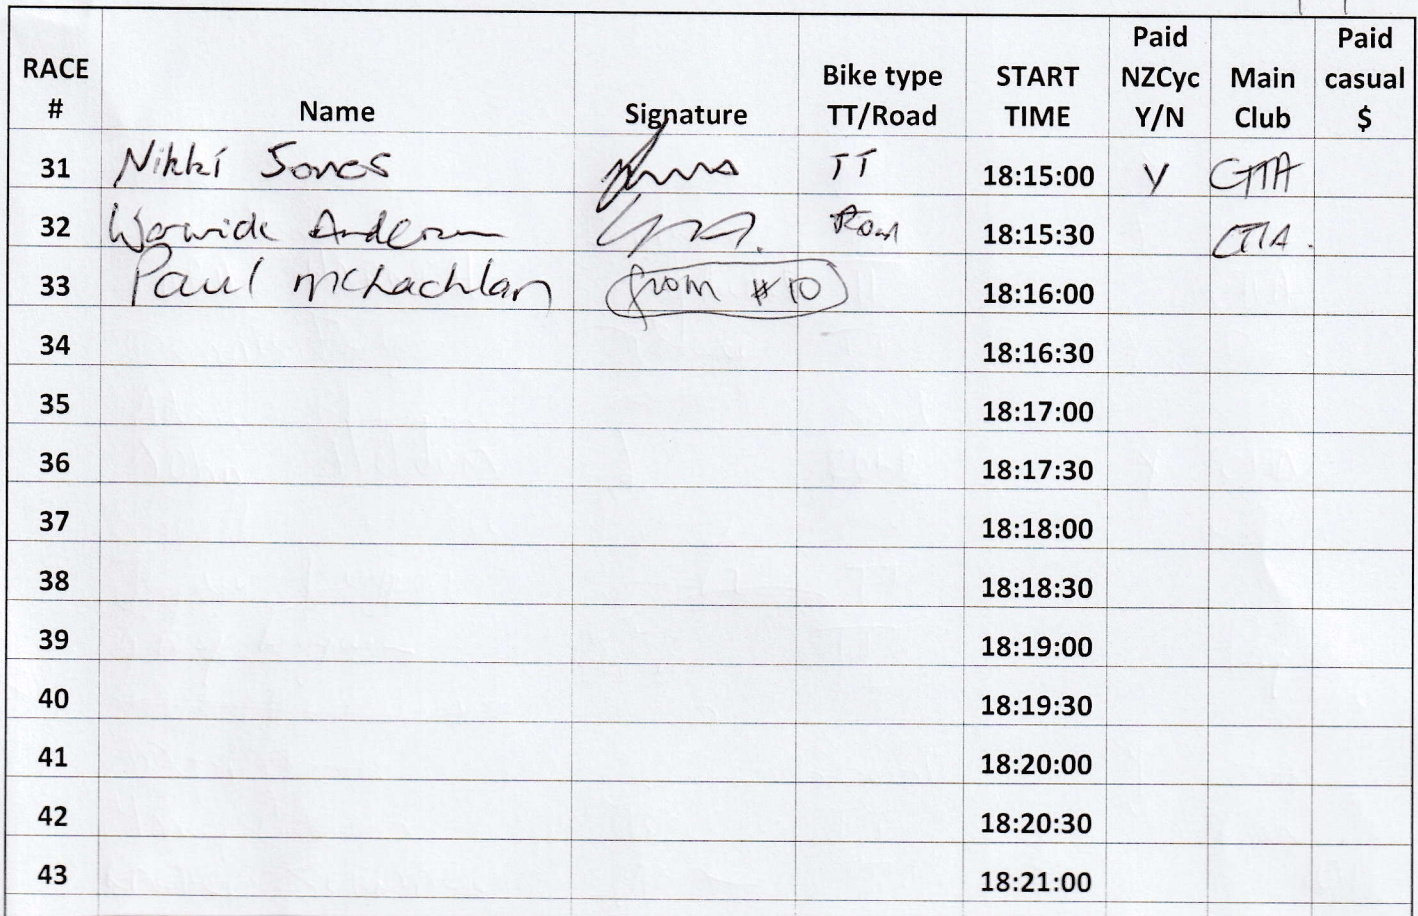 RACE # Name Signature Bike type TT/Road START TIME Paid NZCyc Y/N Main Club Paid casual $
31 Nikki Jones TT 18:15:00 Y GTA
32 Warwick Anderson Road 18:15:30
33 Paul McLachlan from #10 18:16:00
34 18:16:30
35 18:17:00
36 18:17:30
37 18:18:00
38 18:18:30
39 18:19:00
40 18:19:30
41 18:20:00
42 18:20:30
43 18:21:00